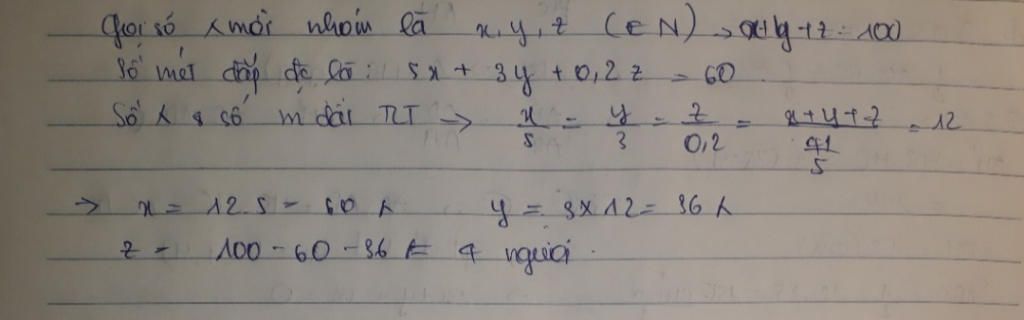 Gọi số ʎ mỗi nhóm là x, y, z (∈ N) → x+y+z = 100
Số mét đắp đc là: 5x + 3y + 0,2z = 60
Số ʎ & số m dài TLT → x/5 = y/3 = z/0,2 = (x+y+z)/(41/5) = 12
→ x = 12.5 = 60 ʎ y = 3x12 = 36 ʎ
z = 100 - 60 - 36 = 4 người.